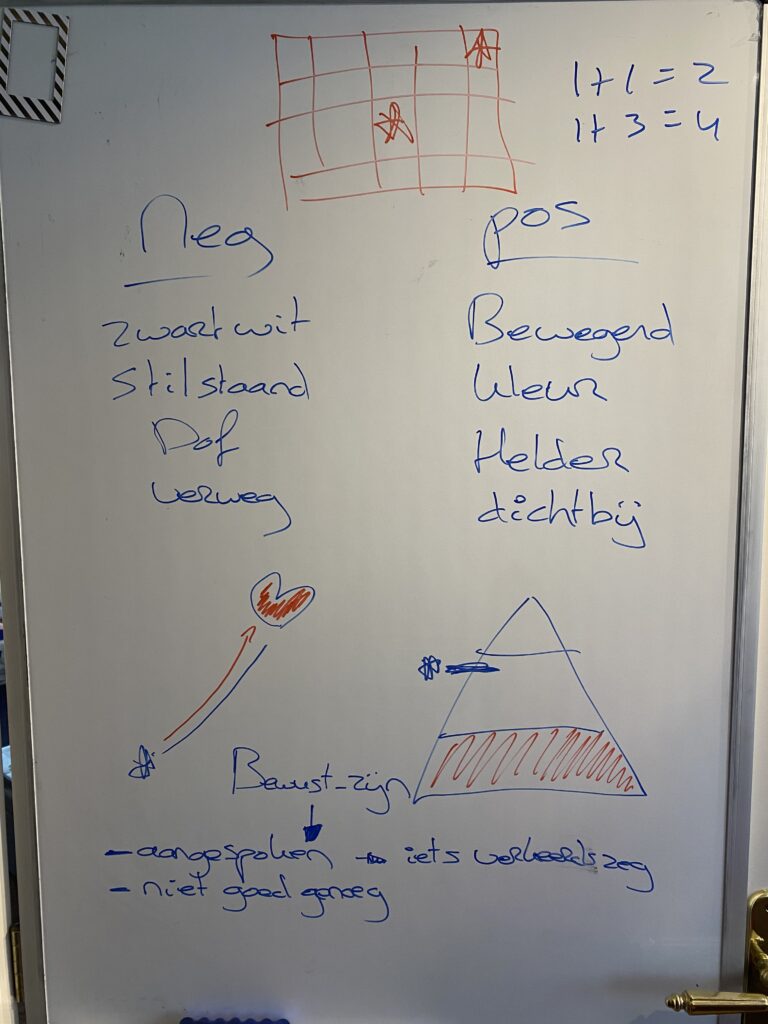 1+1=2
1+3=4
Neg
pos
zwart wit
Bewegend
Stilstaand
kleur
Dof
Helder
verweg
dichtbij
Bewust-zijn
- aangesproken → iets verkeerds zeg
- niet goed genoeg